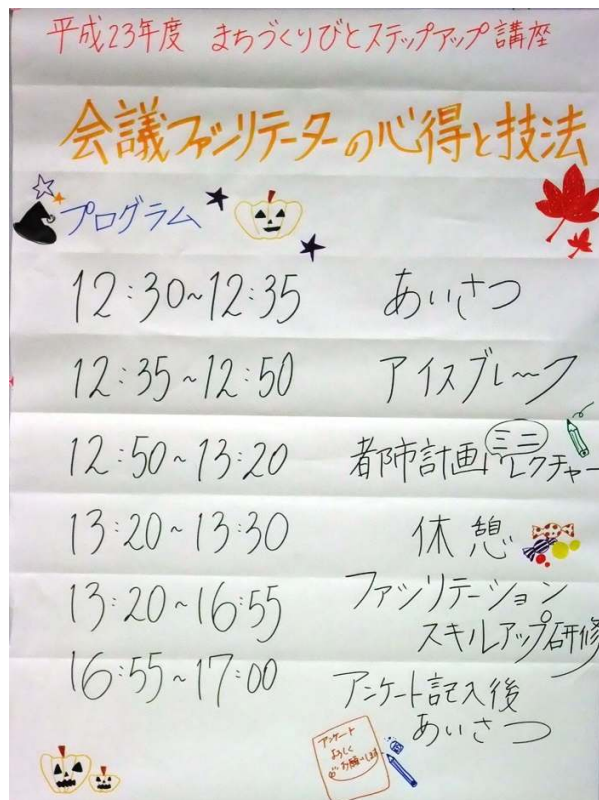 平成23年度 まちづくりびとステップアップ講座
会議ファシリテーターの心得と技法
プログラム
12:30~12:35 あいさつ
12:35~12:50 アイスブレ〜ク
12:50~13:20 都市計画ミニレクチャー
13:20~13:30 休憩
13:20~16:55 ファシリテーション
スキルアップ研修
16:55~17:00 アンケート記入後
あいさつ
アンケート
よろしく
お願いします